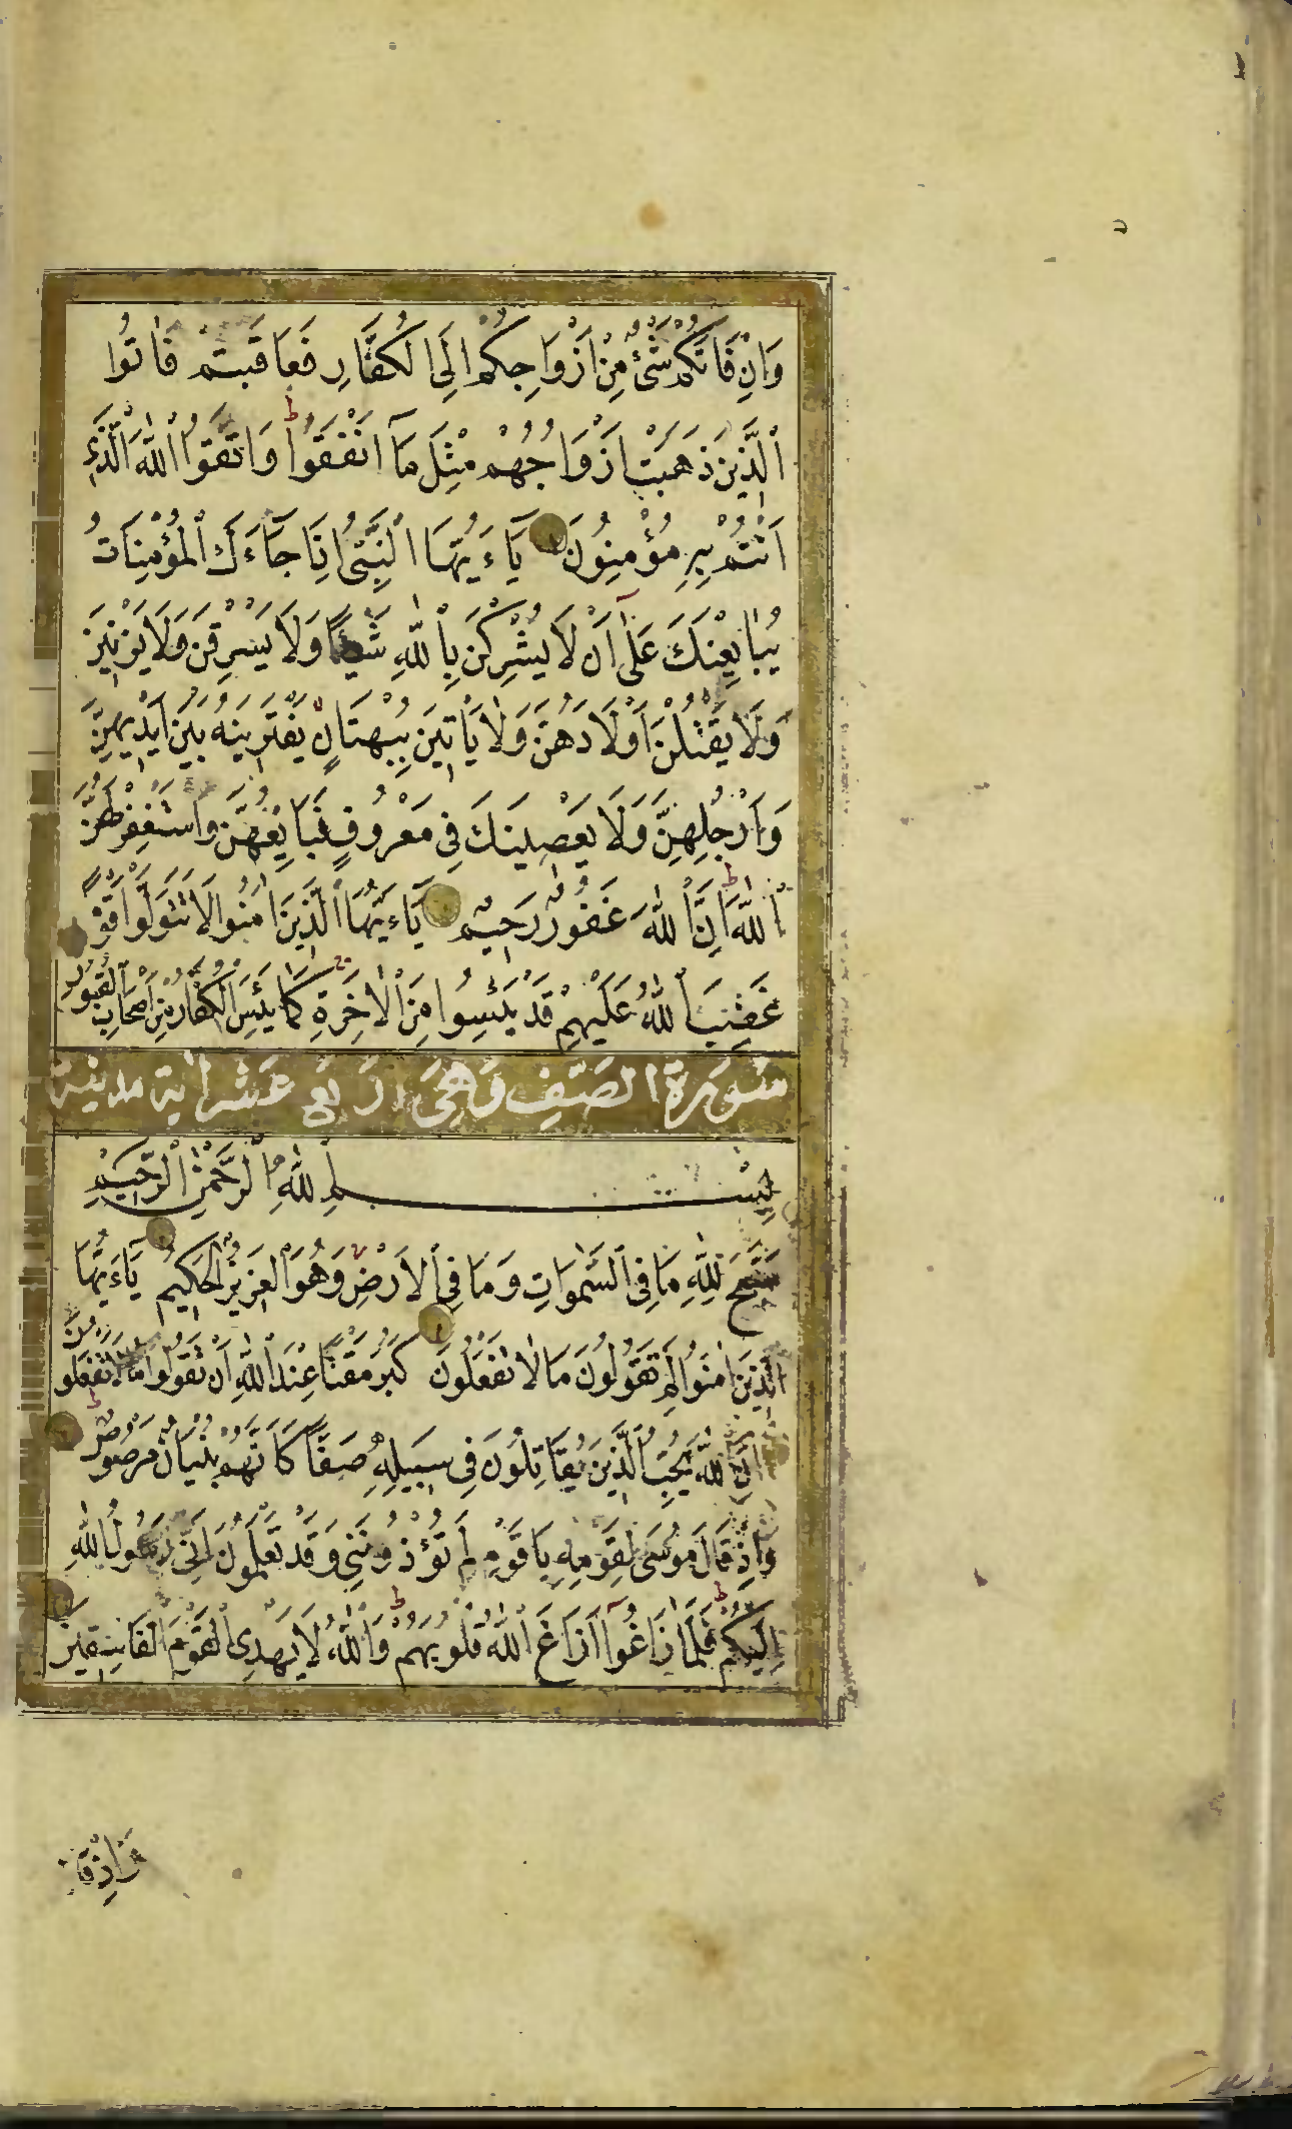 وَاِنْ فَاتَكُمْ شَيْءٌ مِنْ اَزْوَاجِكُمْ اِلَى الْكُفَّارِ فَعَاقَبْتُمْ فَاٰتُوا
الَّذِينَ ذَهَبَتْ اَزْوَاجُهُمْ مِثْلَ مَآ اَنْفَقُوا ط وَاتَّقُوا اللّٰهَ الَّذِي
اَنْتُمْ بِهِ مُؤْمِنُونَ يَآءَيُّهَا النَّبِيُّ اِذَا جَآءَكَ الْمُؤْمِنَاتُ
يُبَايِعْنَكَ عَلٰٓى اَنْ لَا يُشْرِكْنَ بِاللّٰهِ شَيْئًا وَلَا يَسْرِقْنَ وَلَا يَزْنِينَ
وَلَا يَقْتُلْنَ اَوْلَادَهُنَّ وَلَا يَاْتِينَ بِبُهْتَانٍ يَفْتَرِينَهُ بَيْنَ اَيْدِيهِنَّ
وَاَرْجُلِهِنَّ وَلَا يَعْصِينَكَ فِى مَعْرُوفٍ فَبَايِعْهُنَّ وَاسْتَغْفِرْ لَهُنَّ
اللّٰهَ ط اِنَّ اللّٰهَ غَفُورٌ رَحِيمٌ يَآءَيُّهَا الَّذِينَ اٰمَنُوا لَا تَتَوَلَّوْا قَوْمًا
غَضِبَ اللّٰهُ عَلَيْهِمْ قَدْ يَئِسُوا مِنَ الْاٰخِرَةِ كَمَا يَئِسَ الْكُفَّارُ مِنْ اَصْحَابِ الْقُبُورِ
سُورَةُ الصَّفِّ وَهِىَ اَرْبَعَ عَشَرَ اٰية مدنية
بِسْمِ اللّٰهِ الرَّحْمٰنِ الرَّحِيمِ
سَبَّحَ لِلّٰهِ مَا فِى السَّمٰوَاتِ وَمَا فِى الْاَرْضِ وَهُوَ الْعَزِيزُ الْحَكِيمُ يَآءَيُّهَا
الَّذِينَ اٰمَنُوا لِمَ تَقُولُونَ مَا لَا تَفْعَلُونَ كَبُرَ مَقْتًا عِنْدَ اللّٰهِ اَنْ تَقُولُوا مَا لَا تَفْعَلُونَ
اِنَّ اللّٰهَ يُحِبُّ الَّذِينَ يُقَاتِلُونَ فِى سَبِيلِهِ صَفًّا كَاَنَّهُمْ بُنْيَانٌ مَرْصُوصٌ
وَاِذْ قَالَ مُوسٰى لِقَوْمِهِ يَا قَوْمِ لِمَ تُؤْذُونَنِى وَقَدْ تَعْلَمُونَ اَنِّى رَسُولُ اللّٰهِ
اِلَيْكُمْ ط فَلَمَّا زَاغُوٓا اَزَاغَ اللّٰهُ قُلُوبَهُمْ ط وَاللّٰهُ لَا يَهْدِى الْقَوْمَ الْفَاسِقِينَ
وَاِذْ قَا